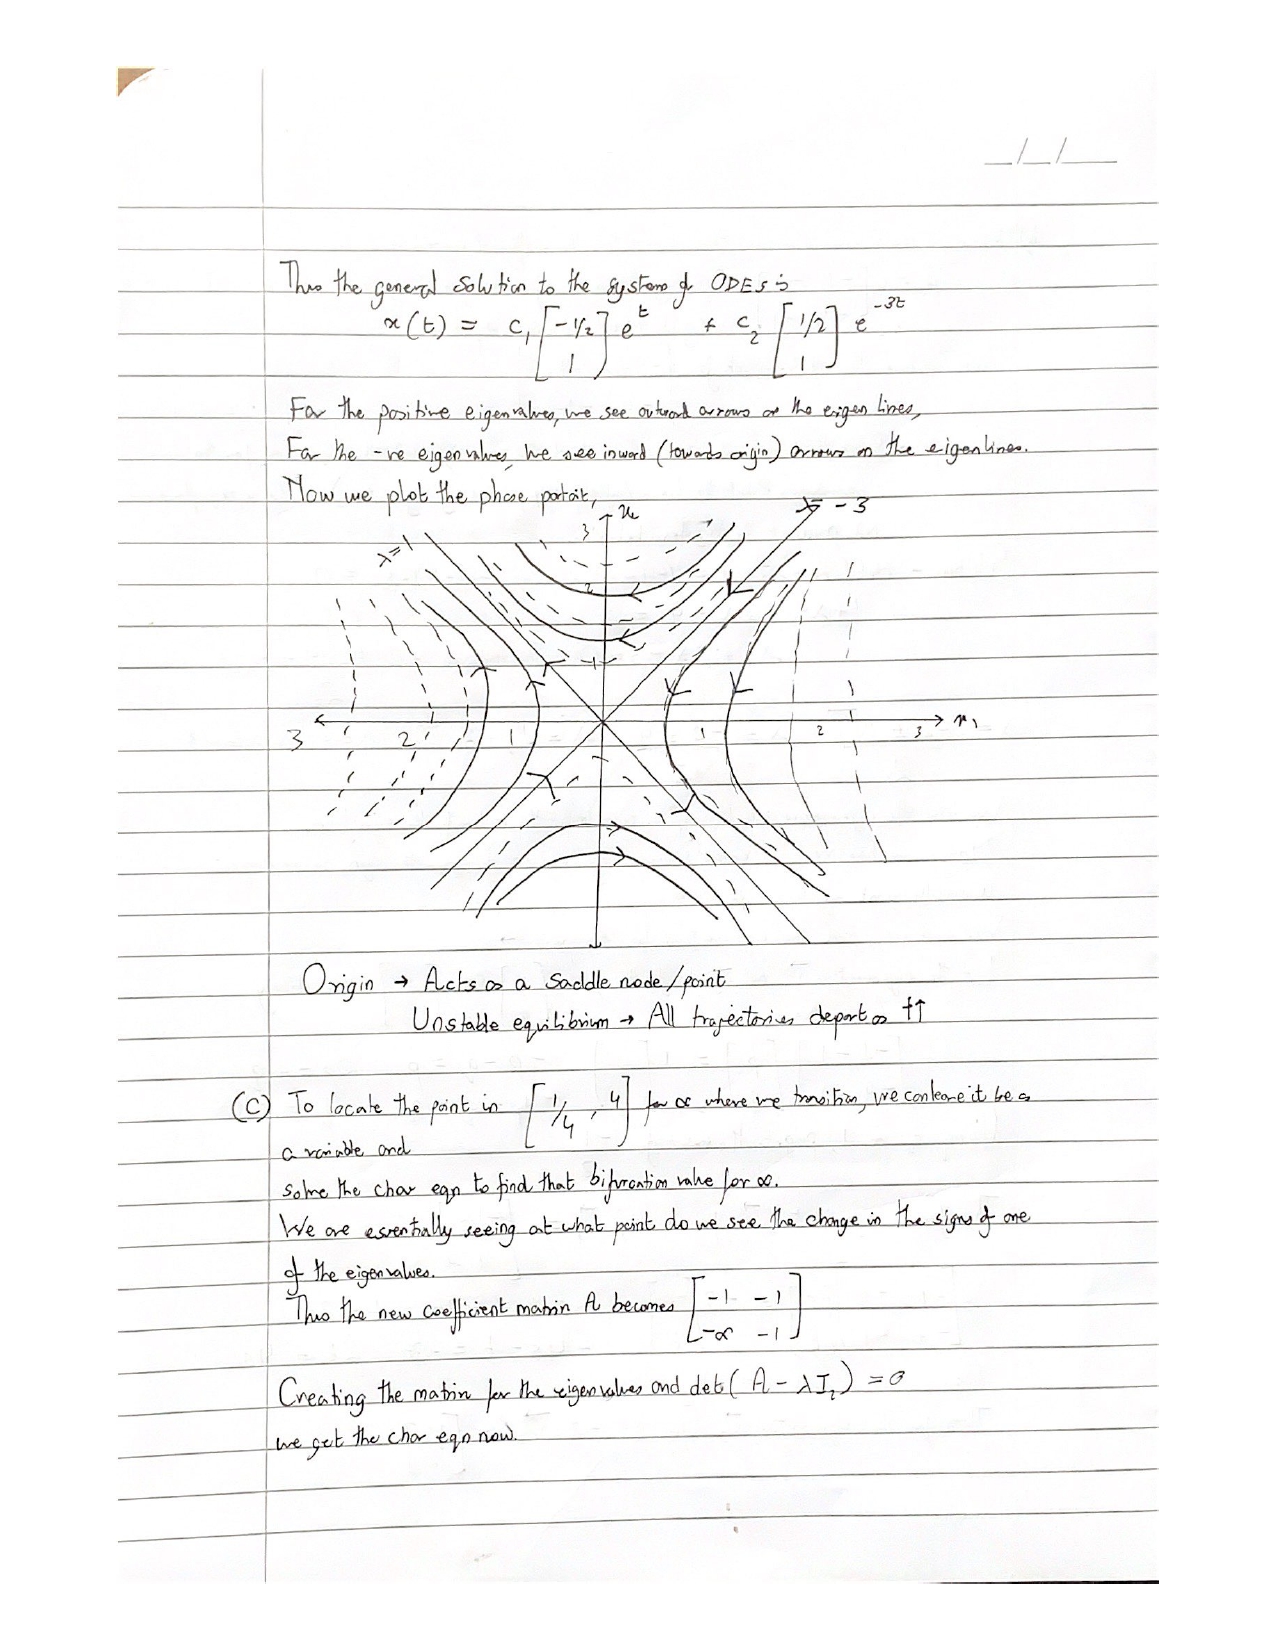 _/_/__
Thus the general solution to the system of ODEs is
x(t) = c₁ [-1/2 1] e^t + c₂ [1/2 1] e^-3t
For the positive eigenvalues, we see outward arrows on the eigen lines,
For the -ve eigenvalues, we see inward (towards origin) arrows on the eigenlines.
Now we plot the phase portait,
λ=1 3 x₂ λ=-3
2
1
3 2 1 1 2 3 x₁
Origin → Acts as a saddle node/point
Unstable equilibrium → All trajectories depart as t↑
(C) To locate the point in [1/4, 4] for α where we transition, we can leave it be as
a variable and
solve the char eqn to find that bifurcation value for α.
We are essentially seeing at what point do we see the change in the signs of one
of the eigenvalues.
Thus the new coefficient matrix A becomes [-1 -1
-α -1]
Creating the matrix for the eigenvalues and det(A - λI₂) = 0
we get the char eqn now.